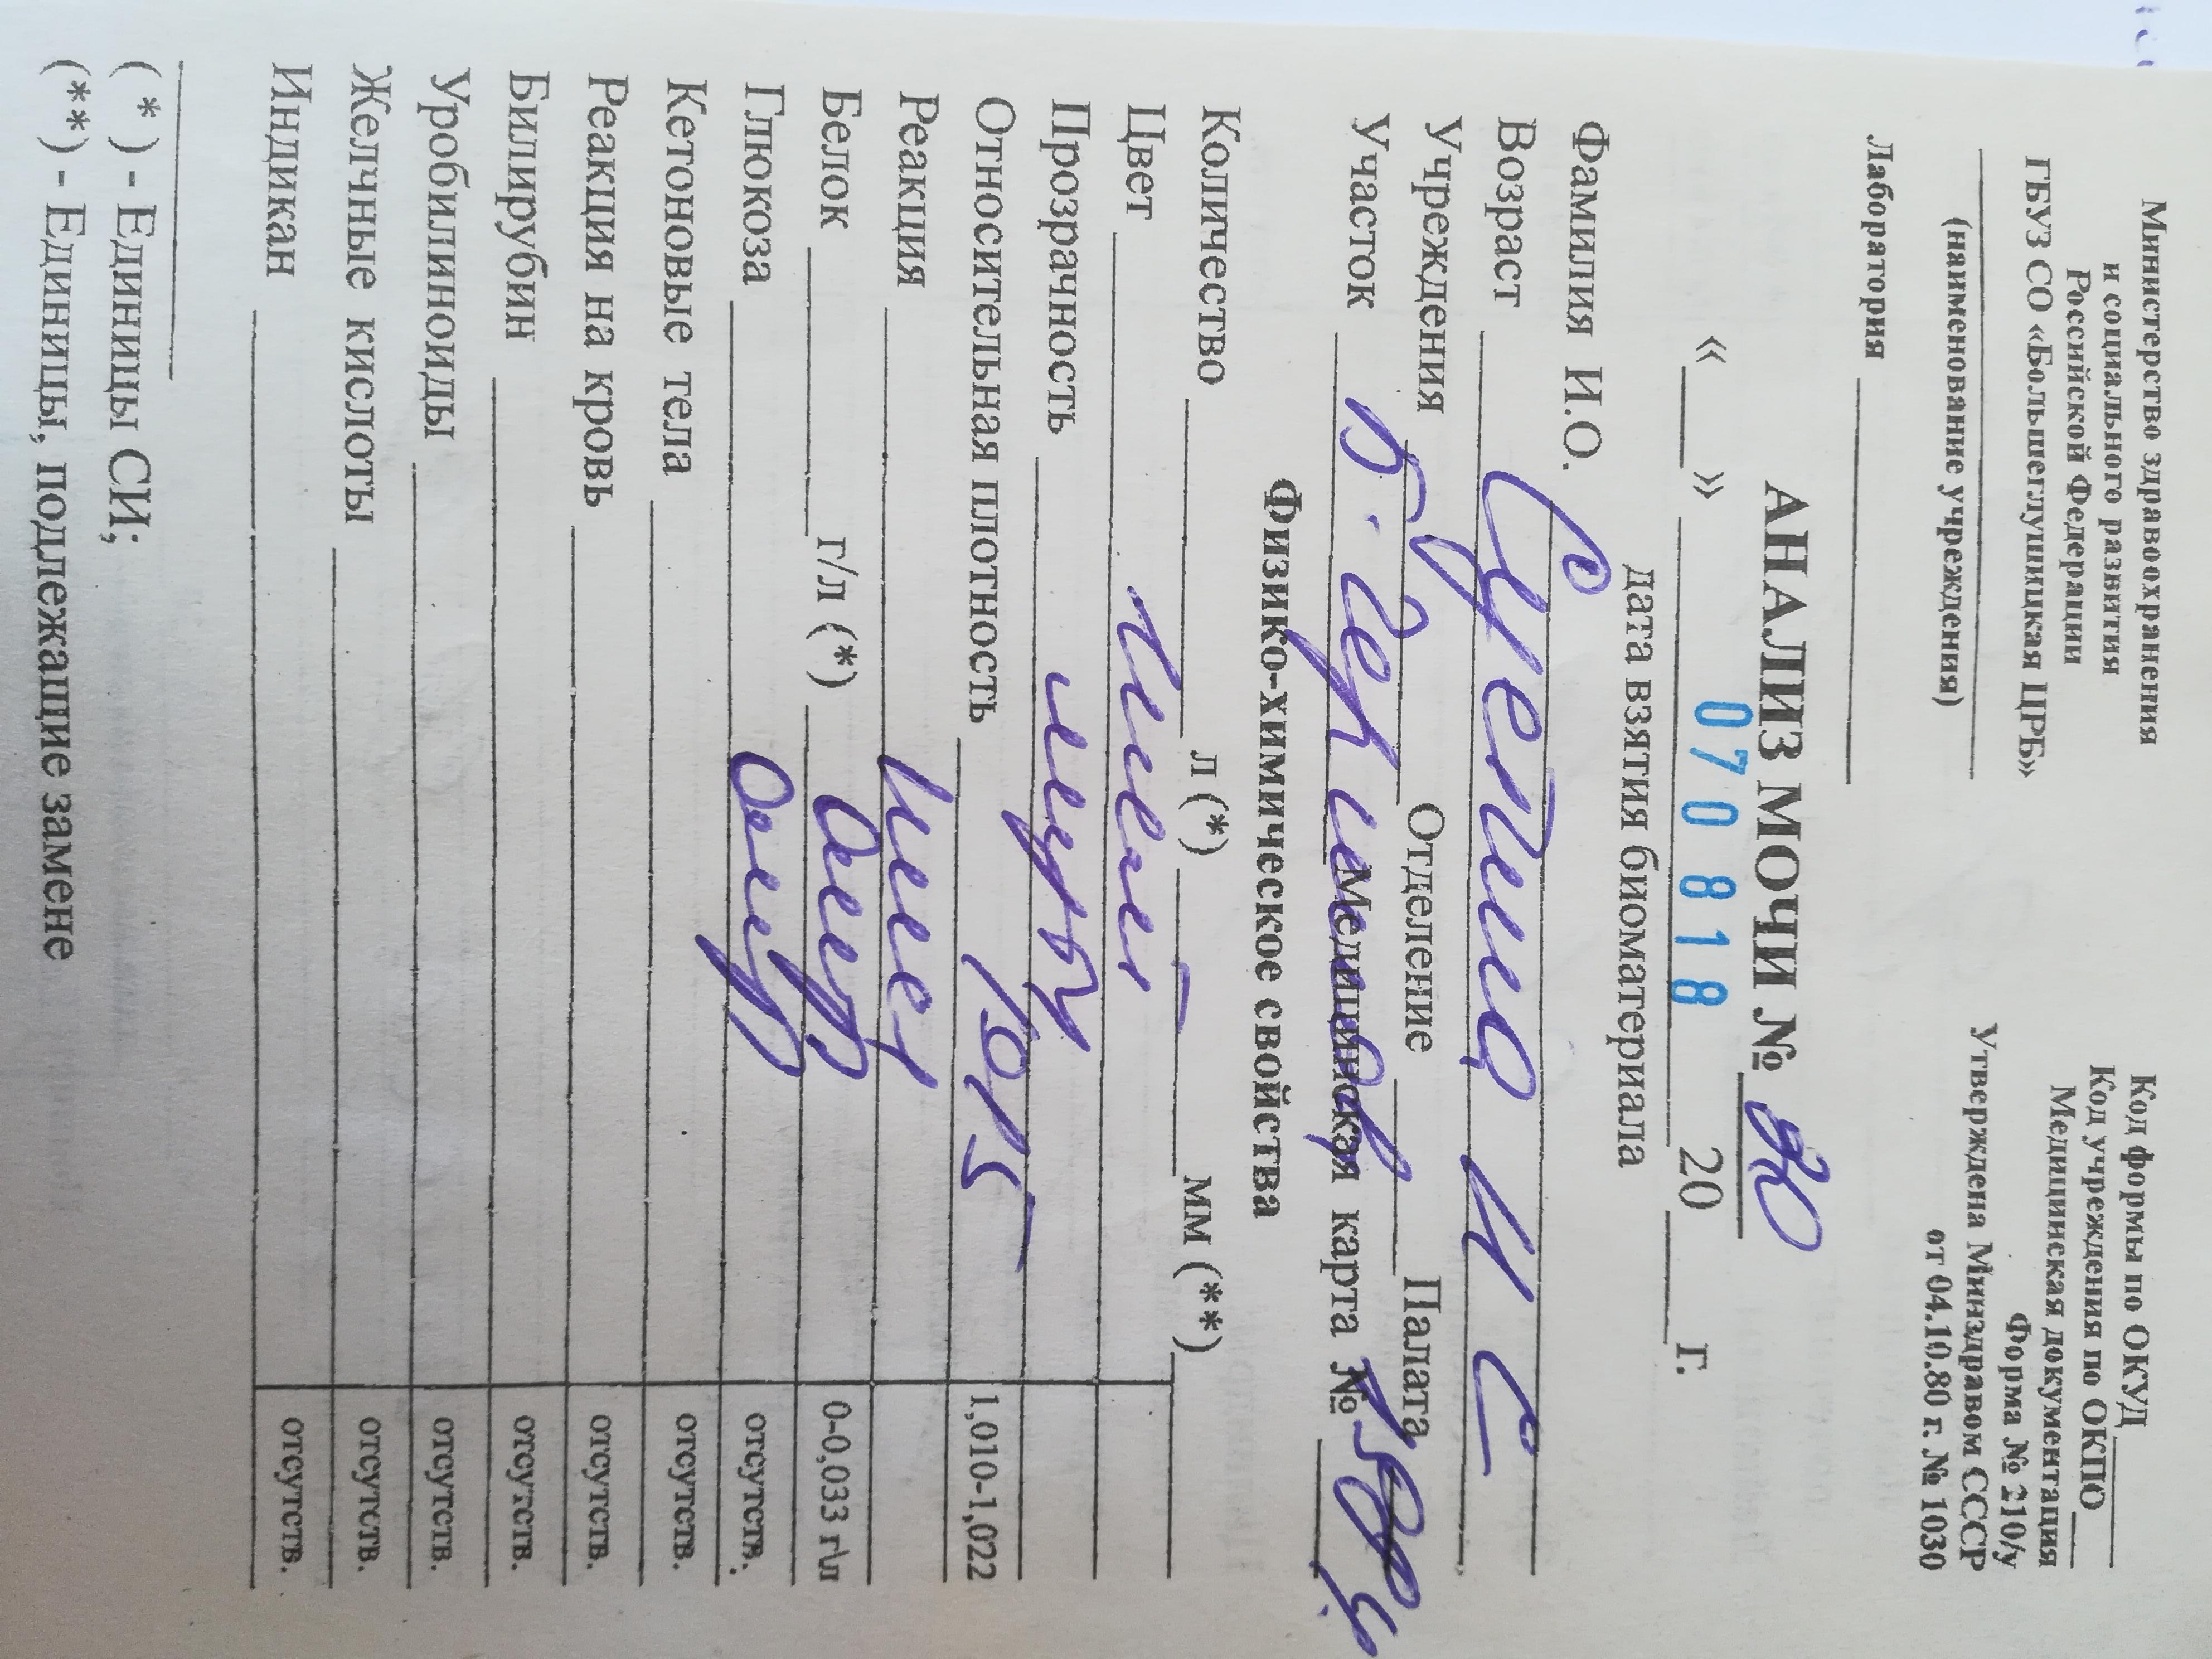 Министерство здравоохранения
и социального развития
Российской Федерации
ГБУЗ СО «Большеглушицкая ЦРБ»
(няименование учреждения)
Лаборатория
Код формы по ОКУД
Код учреждения по ОКПО
Медицинская документация
Форма № 210/у
Утверждена Минздравом СССР
от 04.10.80 г. № 1030
АНАЛИЗ МОЧИ №
« » 07 0 8 1 8 20 г.
дата взятия биоматериала
Фамилия И.О.
Возраст И С
Учреждения Отделение Палата
Участок Медицинская карта №
Физико-химическое свойства
Количество л (*) мм (**)
Цвет
Прозрачность
Относительная плотность 1015 1,010-1,022
Реакция
Белок г/л (*) 0-0,033 г\л
Глюкоза отсутств.
Кетоновые тела отсутств.
Реакция на кровь отсутств.
Билирубин отсутств.
Уробилиноиды отсутств.
Желчные кислоты отсутств.
Индикан отсутств.
(*) - Единицы СИ;
(**) - Единицы, подлежащие замене